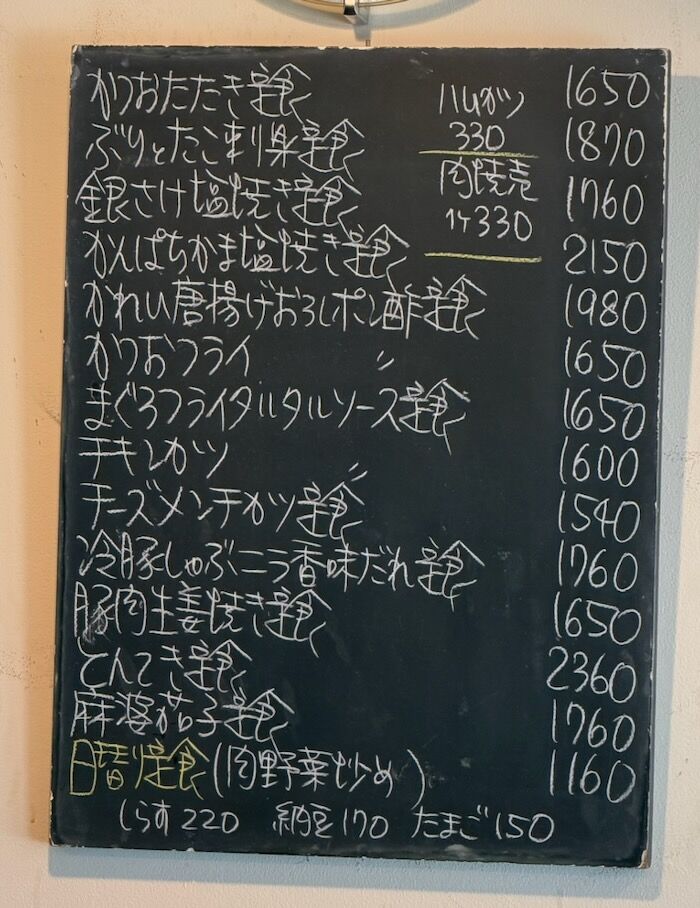 かつおたたき定食 1650
ぶりとたこ刺身定食 1870
銀さけ塩焼き定食 1760
かんぱちかま塩焼き定食 2150
かれい唐揚げおろしポン酢定食 1980
かつおフライ 〃 1650
まぐろフライタルタルソース定食 1650
チキンカツ 〃 1600
チーズメンチカツ定食 1540
冷豚しゃぶニラ香味だれ定食 1760
豚肉生姜焼き定食 1650
とんてき定食 2360
麻婆茄子定食 1760
日替り定食(肉野菜炒め) 1160
しらす220 納豆170 たまご150
ハムカツ
330
肉焼売
1ケ330